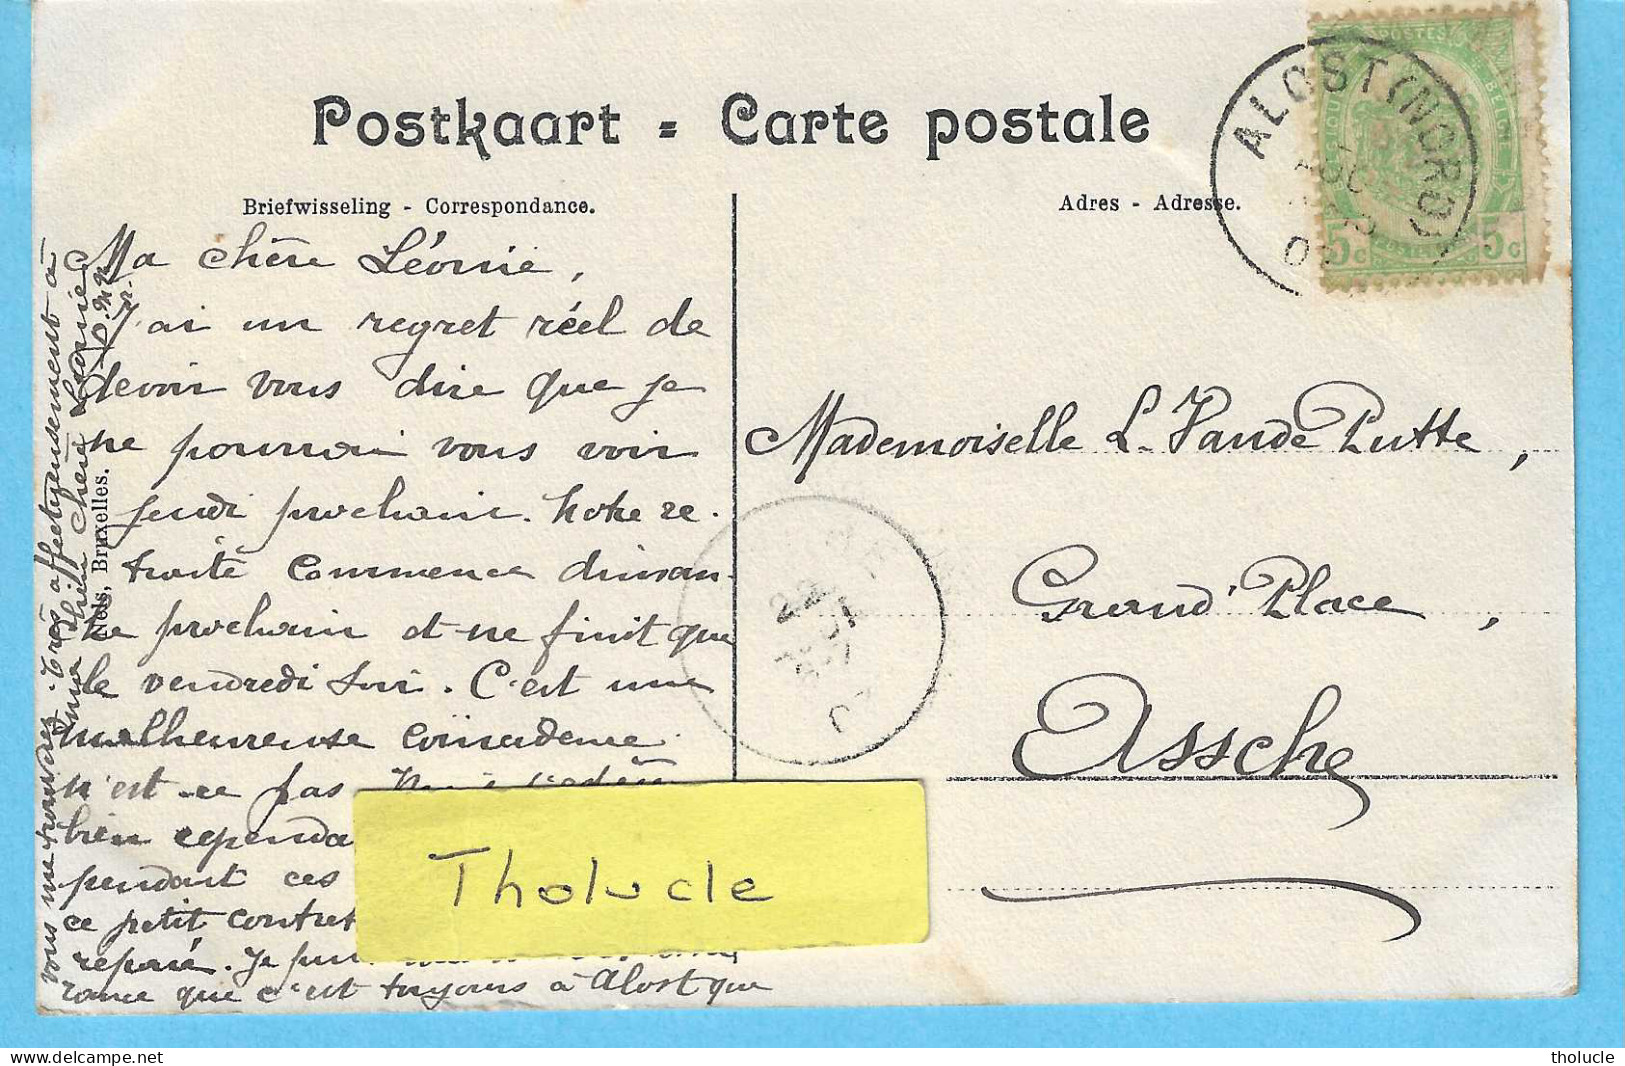 Postkaart = Carte postale
Briefwisseling - Correspondance.
Adres - Adresse.
ALOST (NORD)
POSTES
BELGIQUE BELGIE
5c 5c
Ma chère Léonie,
J'ai un regret réel de
devoir vous dire que je
ne pourrai vous voir
jeudi prochain. Notre re-
traite commence diman-
che prochain et ne finit que
le vendredi soir. C'est une
malheureuse coïncidence
n'est-ce pas
bien cependa
pendant ces
ce petit contret
réparé. Je
rance que c'est toujours à Alost que
vous me trouverez. Très affectueusement à
ma chère Léonie
Nels, Bruxelles.
Mademoiselle L. Van de Putte,
Grand'Place,
Assche
Tholucle
tholucle